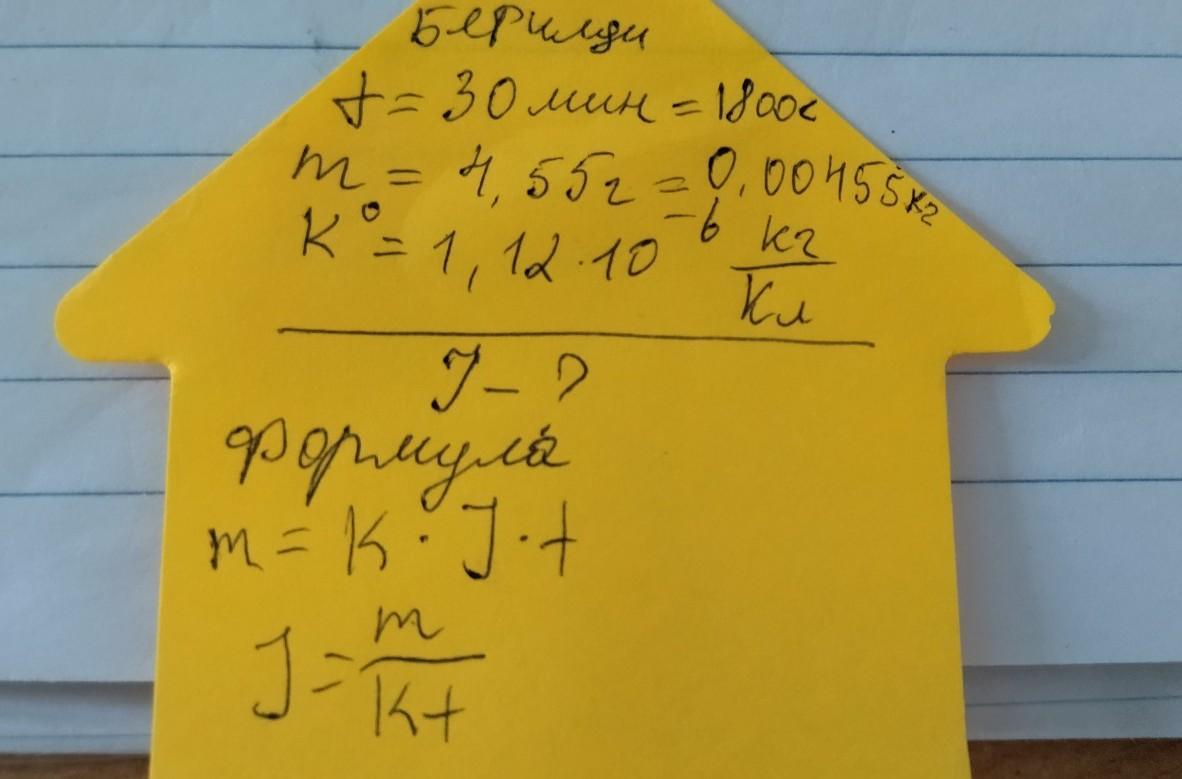 Берилди
t = 30 мин = 1800с
m = 4,55г = 0,00455кг
K° = 1,12·10⁻⁶ кг/Кл
J – ?
формула
m = K · J · t
J = m/Kt